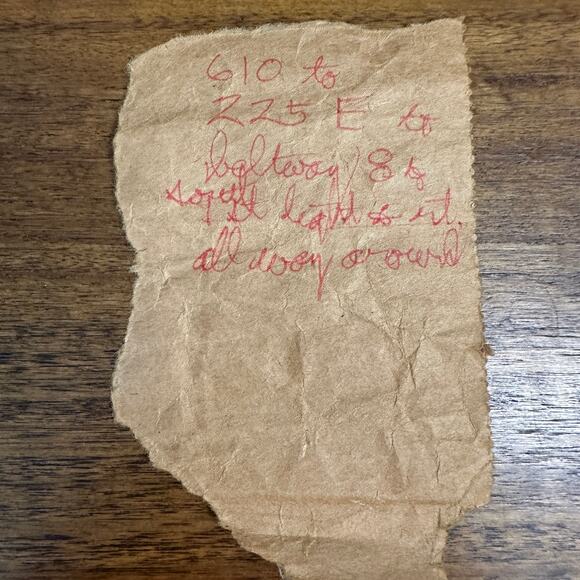 610 to
225 E to
bgltway 8 to
light to ext.
all way around